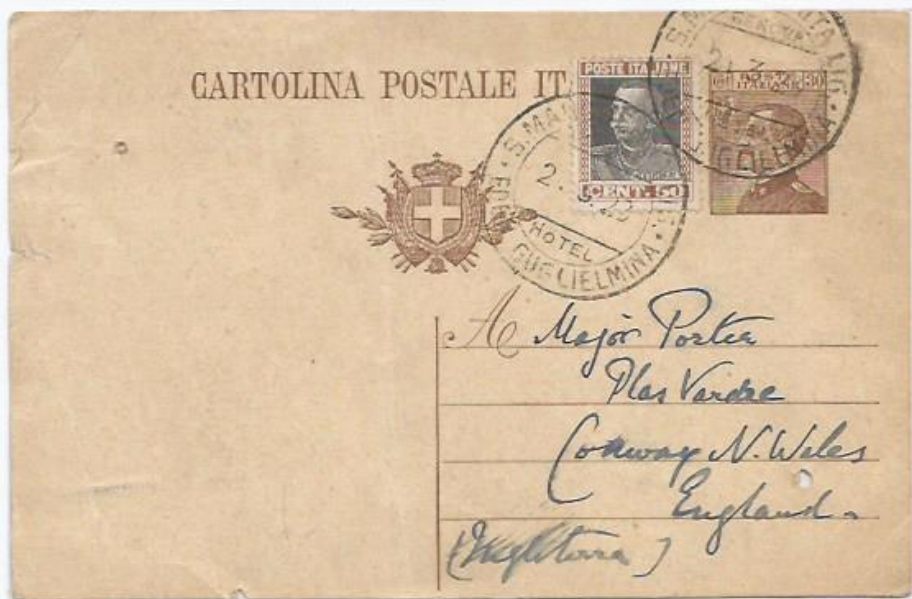 CARTOLINA POSTALE IT
POSTE ITALIANE
CENT. 50
S. MAR
HOTEL
GUGLIELMINA
S. M ITA LIG.
GUGLIELMINA
A Major Porter
Plas Vardre
Conway N. Wales
England
(Inghilterra)